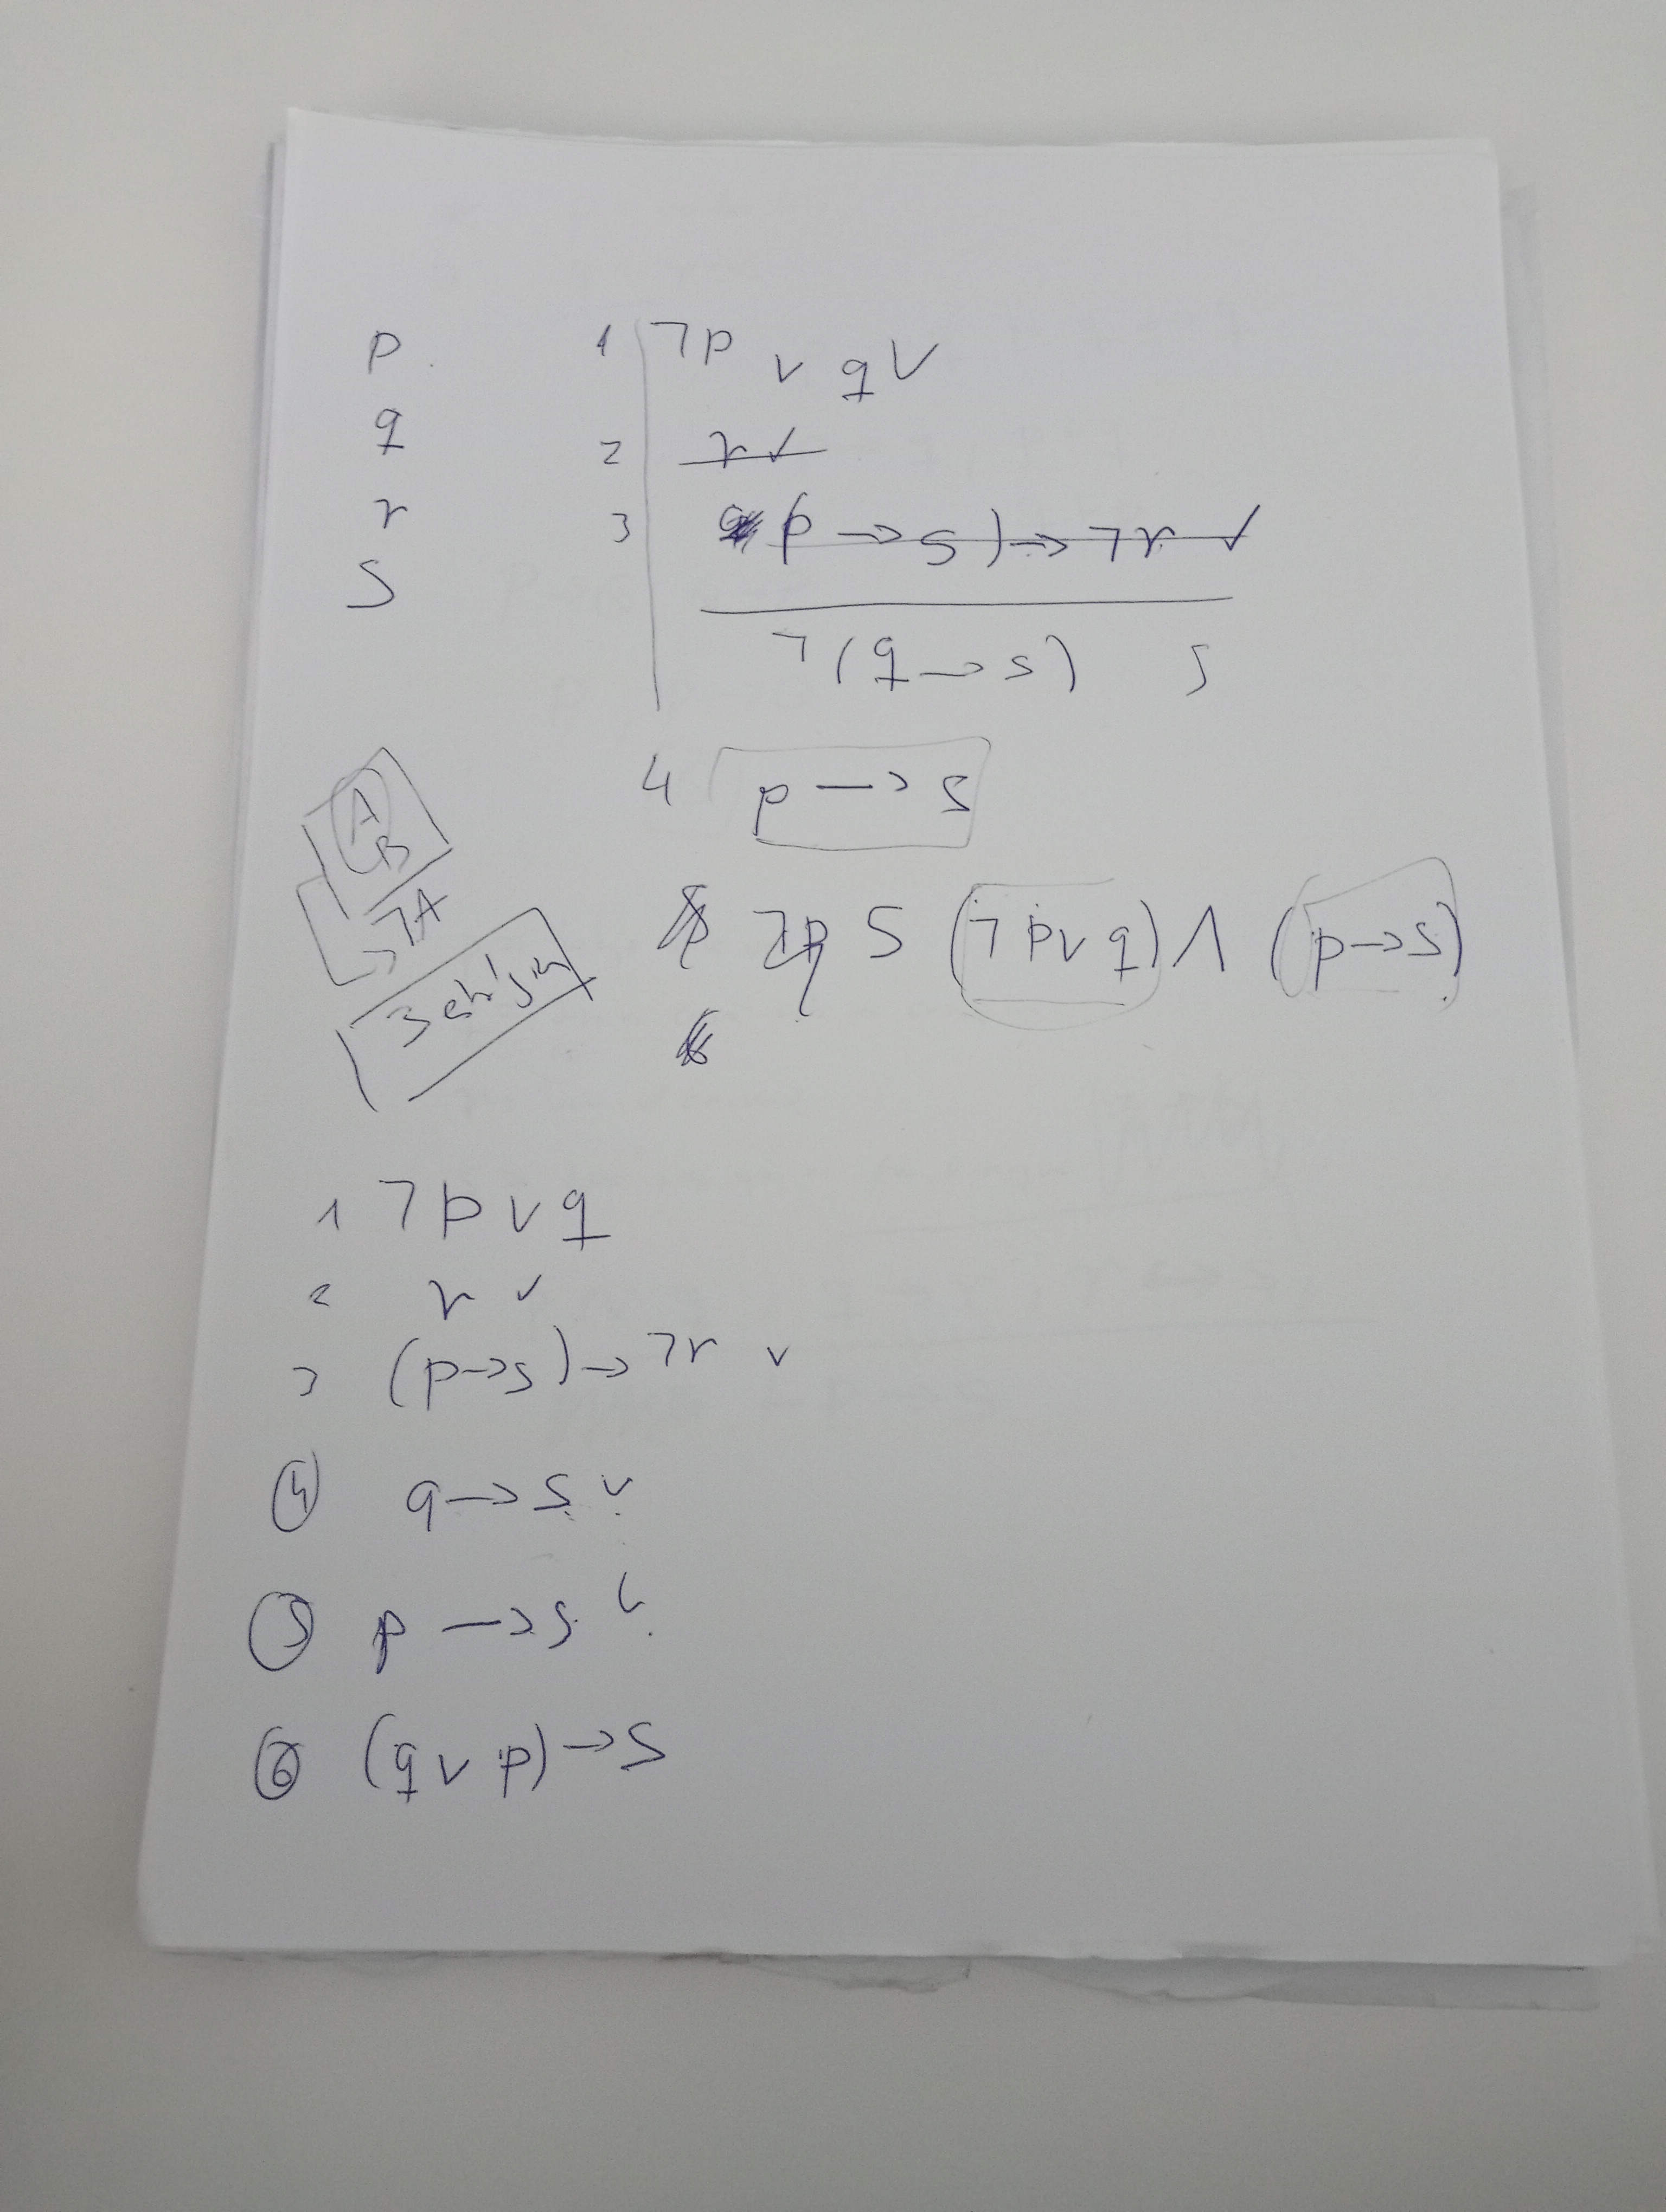 p
q
r
s
1 ¬p ∨ q ✓
2 r ✓
3 (p → s) → ¬r ✓
¬(q → s) 5
4 p → s
A
B
¬A
5 (¬p ∨ q) ∧ (p → s)
1 ¬p ∨ q
2 r ✓
3 (p → s) → ¬r ✓
④ q → s ✓
⑤ p → s
⑥ (q ∨ p) → s